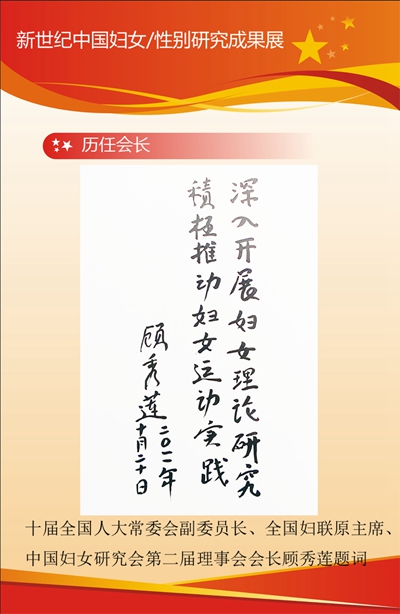 新世纪中国妇女/性别研究成果展
历任会长
深入开展妇女理论研究
積极推动妇女运动实践
顾秀莲
二〇一一年
十月二十日
十届全国人大常委会副委员长、全国妇联原主席、
中国妇女研究会第二届理事会会长顾秀莲题词